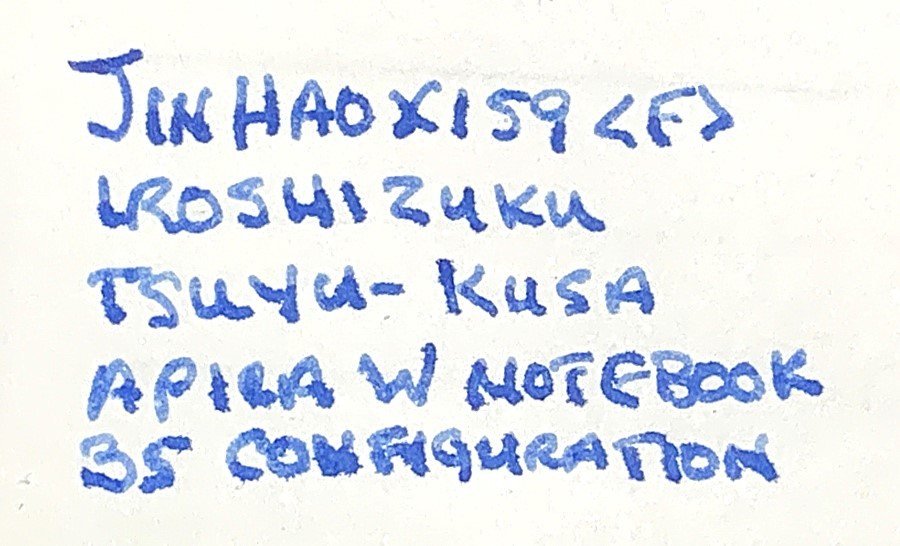 JINHAO X159 <F>
IROSHIZUKU
TSUYU-KUSA
APIRA W NOTEBOOK
35 CONFIGURATION